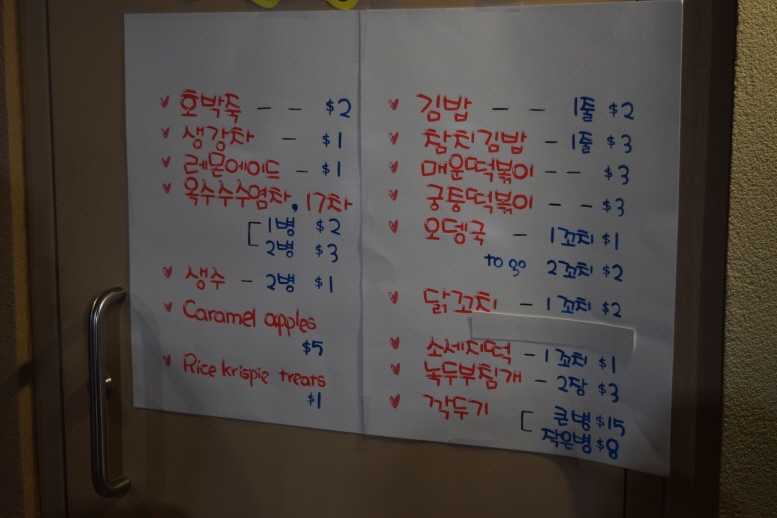 호박죽 - - $2
생강차 - $1
레몬에이드 - $1
옥수수수염차, 17차
1병 $2
2병 $3
생수 - 2병 $1
Caramel apples
$5
Rice krispie treats
$1
김밥 - - 1줄 $2
참치김밥 - 1줄 $3
매운떡볶이 - - $3
궁중떡볶이 - - $3
오뎅국 - 1꼬치 $1
to go 2꼬치 $2
닭꼬치 - 1꼬치 $2
소세지떡 - 1꼬치 $1
녹두부침개 - 2장 $3
깍두기 큰병 $15
작은병 $8